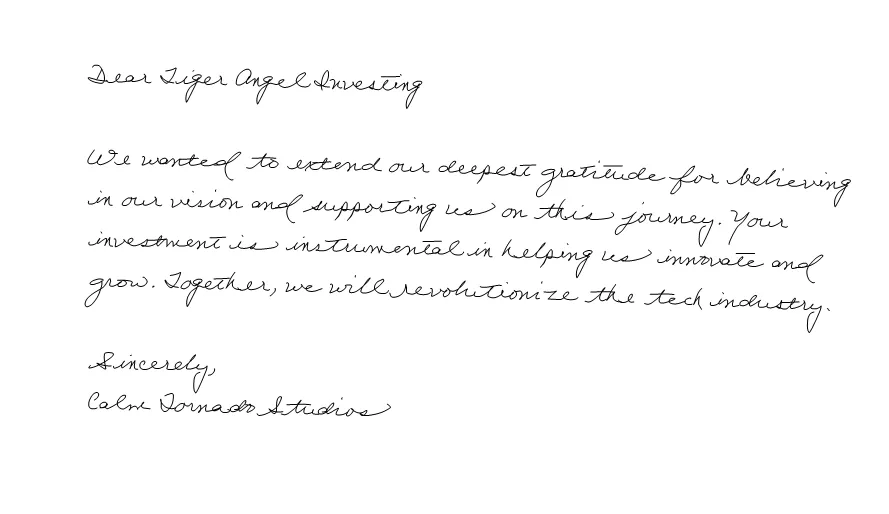 Dear Tiger Angel Investing
We wanted to extend our deepest gratitude for believing
in our vision and supporting us on this journey. Your
investment is instrumental in helping us innovate and
grow. Together, we will revolutionize the tech industry.
Sincerely,
Calm Tornado Studios